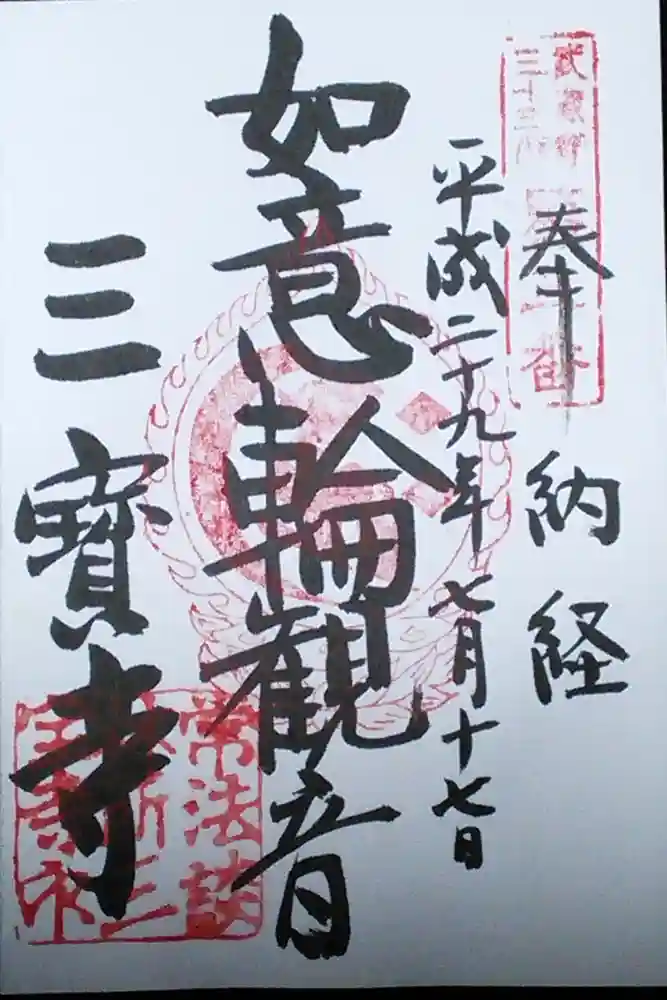 武蔵野
三十三
番
奉納経
平成二十九年七月十七日
如意輪観音
三寳寺
常法談
林所三